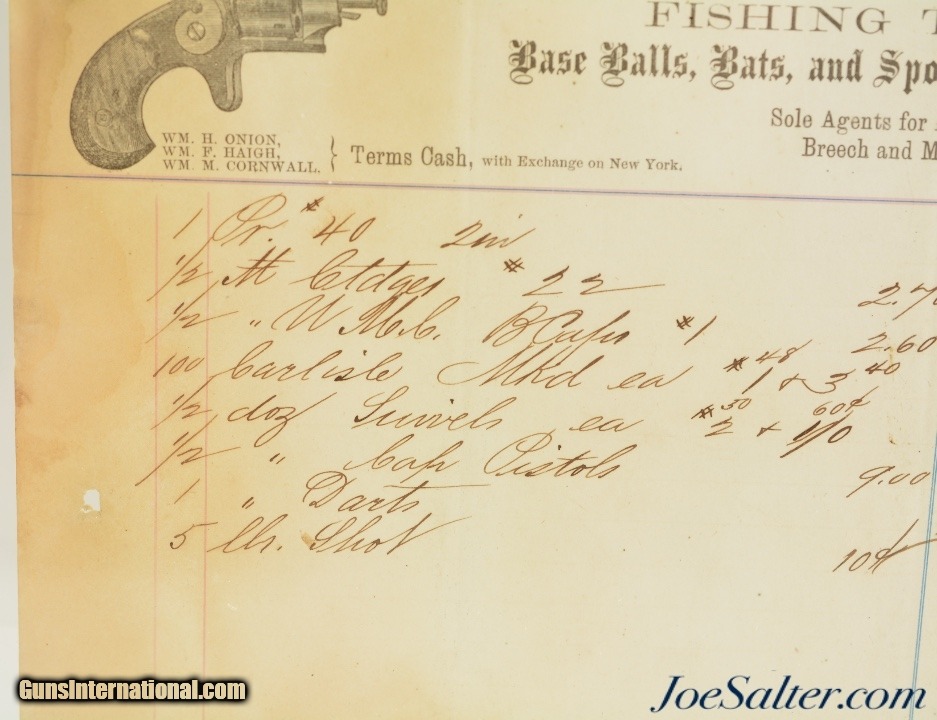 FISHING T
Base Balls, Bats, and Spo
Sole Agents for
Breech and M
WM. H. ONION,
WM. F. HAIGH,
WM. M. CORNWALL.
} Terms Cash, with Exchange on New York.
1 Pr. #40 2 in
1/2 M Ctdges #22 2.7
1/2 " U.M.C. B Caps #1 2.60
100 Carlisle Mkd ea #1 48 & 3 40
1/2 doz Swivels ea #2 50 + 1/0 60¢
1/2 " Cap Pistols 9.00
1 " Darts
5 lbs. Shot 10¢
GunsInternational.com
JoeSalter.com